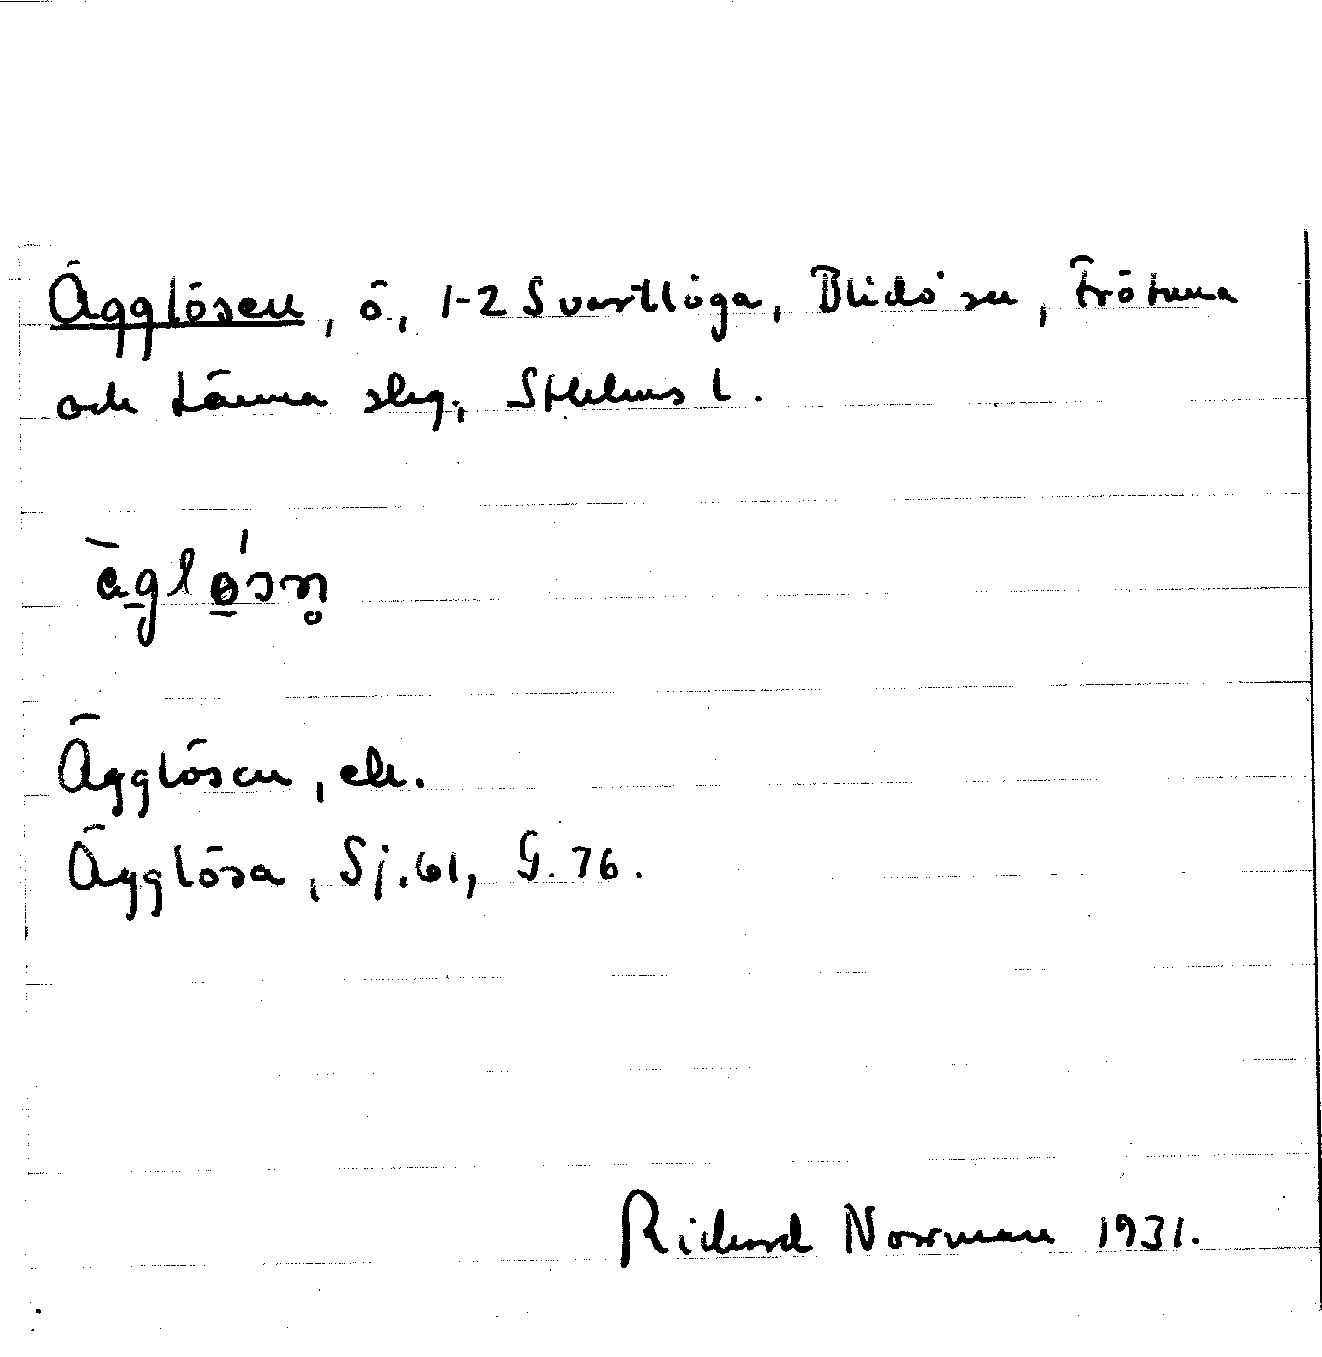 Ägglösen, ö, 1-2 Svartlöga, Blidö sn, Frötuna
och Länna slg, Sthlms l.
äglø̀sn̥
Ägglösen, ek.
Ägglösa, Sj. 61, G. 76.
Richard Norrman 1931.